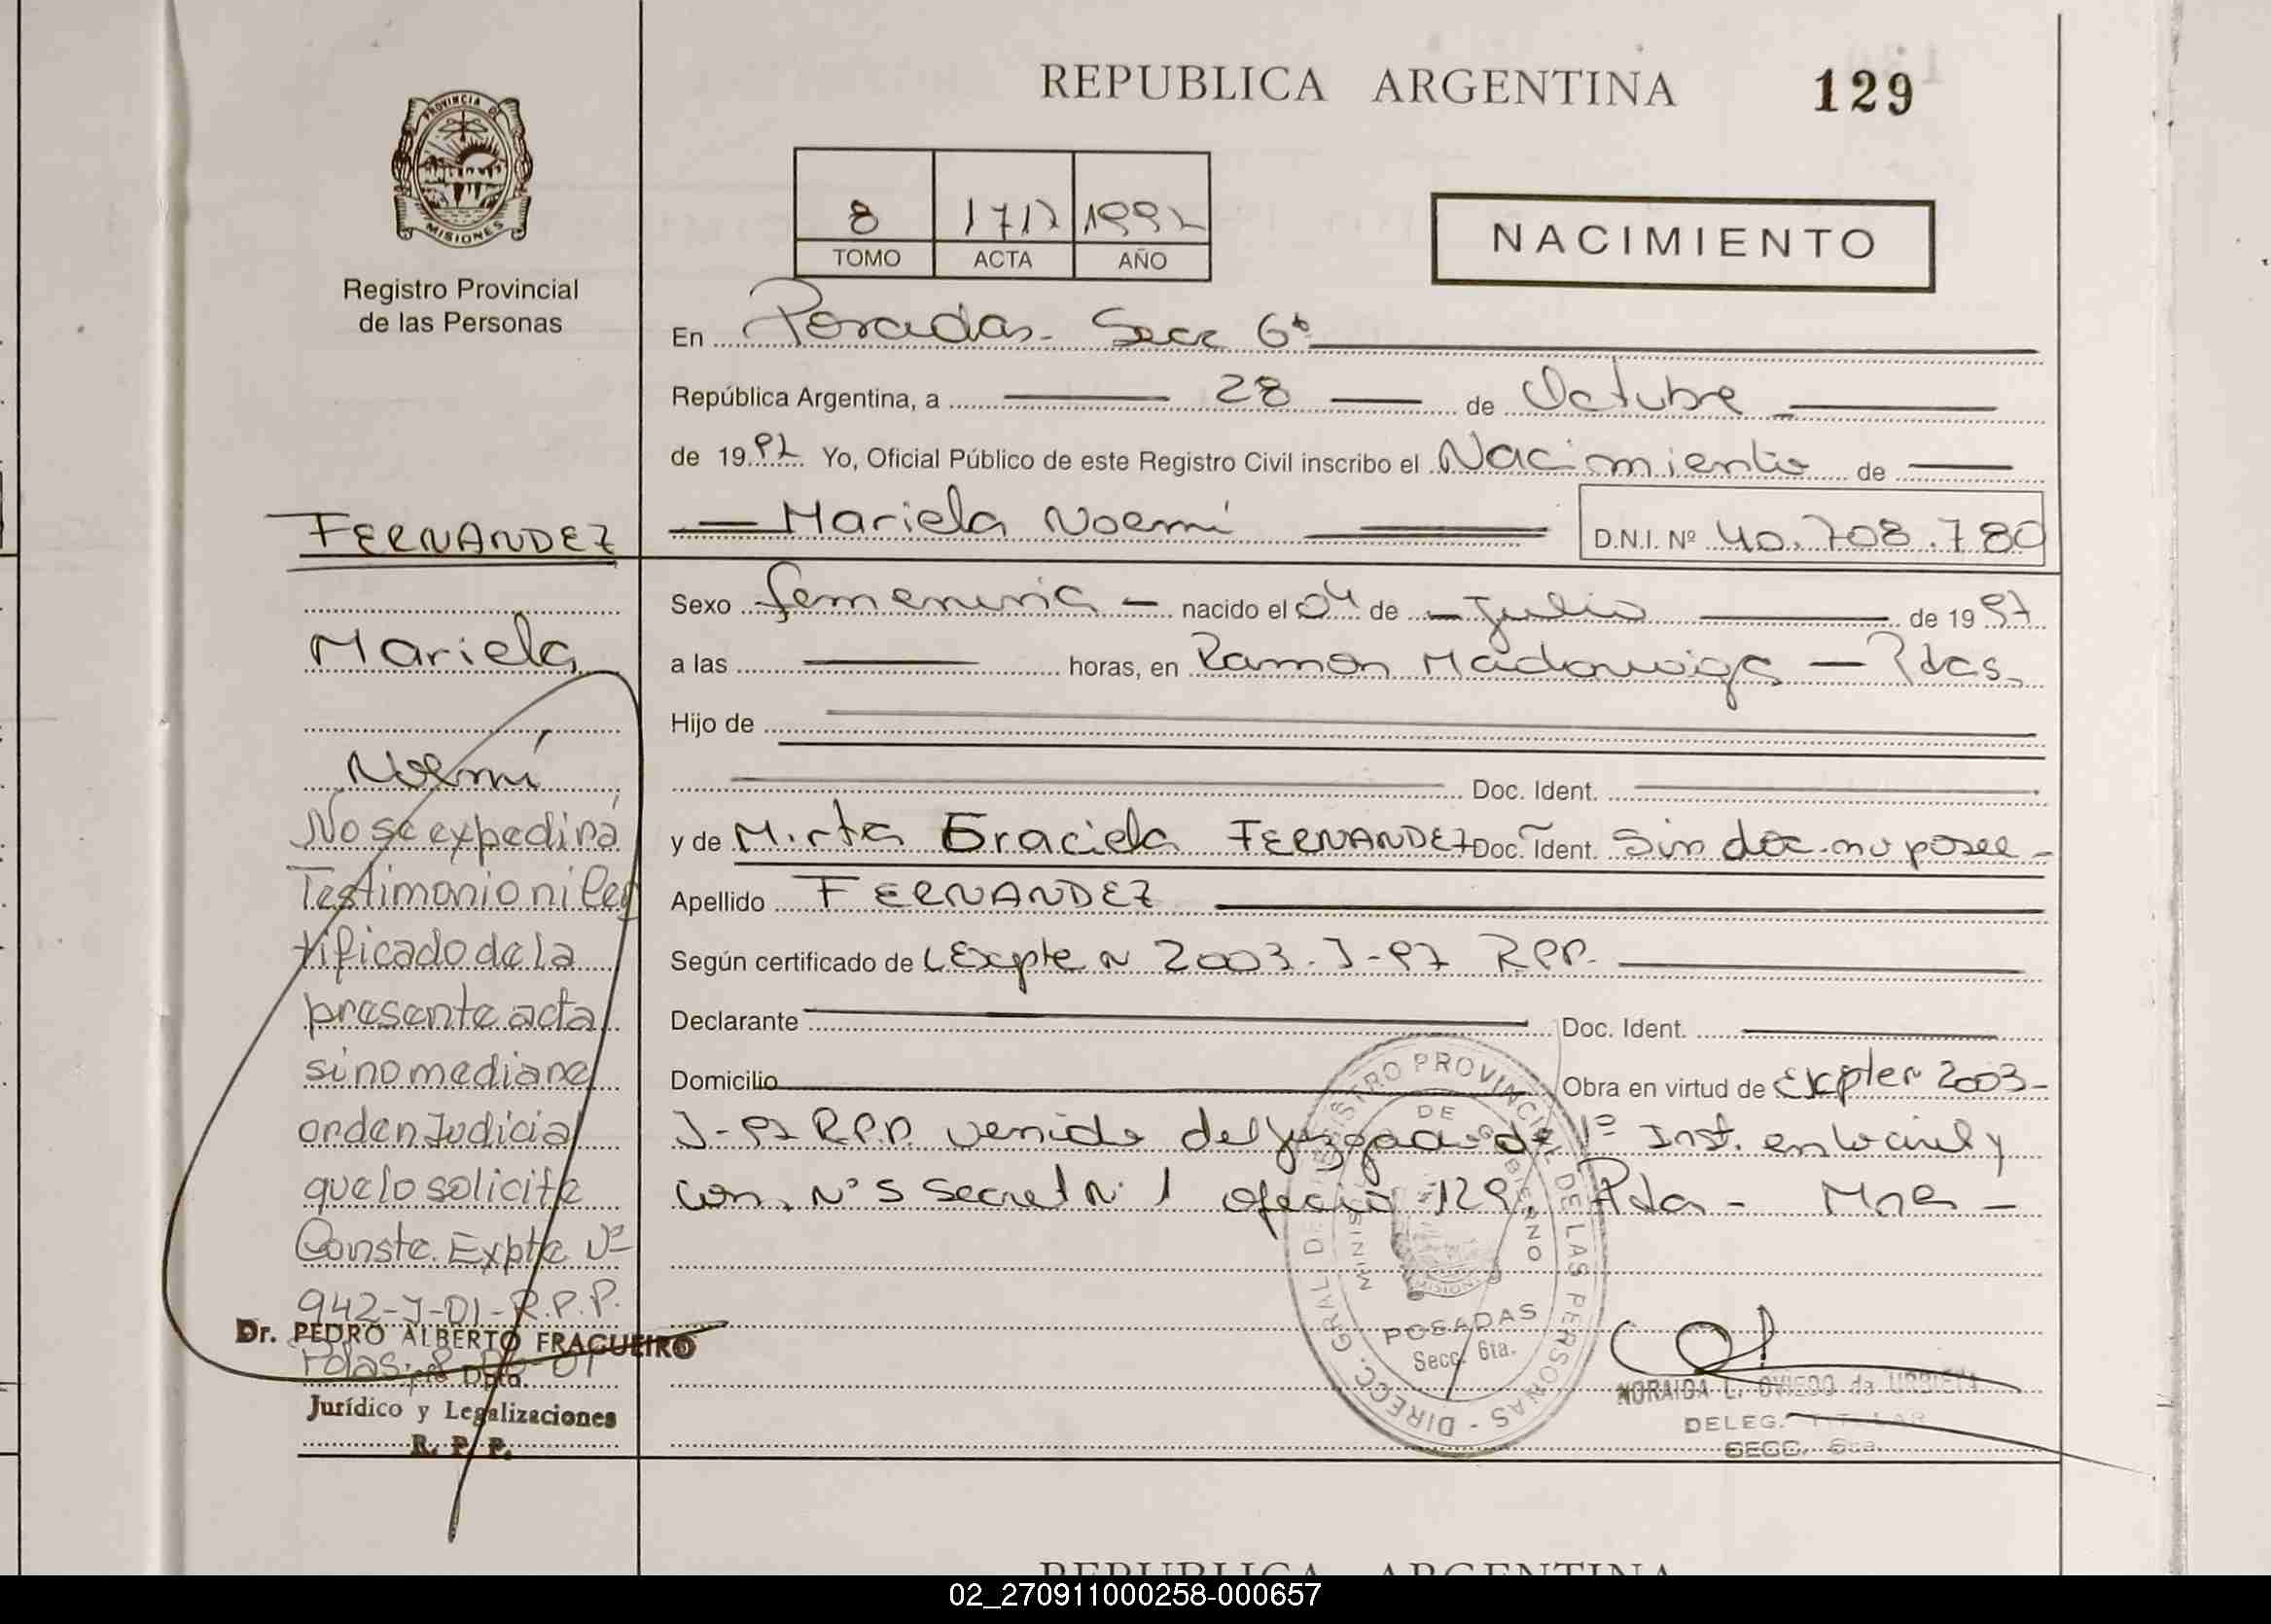 REPUBLICA ARGENTINA 129
PROVINCIA DE
MISIONES
Registro Provincial
de las Personas
8 1717 1997
TOMO ACTA AÑO
NACIMIENTO
En Posadas - Secc 6ª
República Argentina, a 28 de Octubre
de 1997 Yo, Oficial Público de este Registro Civil inscribo el Nacimiento de
Mariela Noemí D.N.I. Nº 40.708.780
Sexo femenino - nacido el 04 de Julio de 1997
a las horas, en Ramón Madariaga - Pdas.
Hijo de
Doc. Ident.
y de Mirta Graciela FERNANDEZ Doc. Ident. Sin doc. no posee -
Apellido FERNANDEZ
Según certificado de Expte N 2003 - J - 97 RPP.
Declarante Doc. Ident.
Domicilio Obra en virtud de Expte N 2003 -
J - 97 R.P.P. venido del Juzgado de 1º Inst. en lo civil y
Com. Nº 5 Secret Nº 1 oficio 129 Pdas - Mnes -
FERNANDEZ
Mariela
Noemí
No se expedirá
Testimonio ni Cer
tificado de la
presente acta
sino mediane
orden Judicial
que lo solicite
Conste. Expte Nº
942-J-01-R.P.P.
Pdas:
Dr. PEDRO ALBERTO FRAGUEIRO
Dpto.
Jurídico y Legalizaciones
R. P. P.
DIRECC. GRAL. DE REGISTRO PROVINCIAL DE LAS PERSONAS -
MINIS DE GOBIERNO
MISIONES
POSADAS
Secc. 6ta.
NORAIDA L. OVIEDO de URBIETA
DELEG. TITULAR
SECC. 6ta.
REPUBLICA ARGENTINA
02_270911000258-000657